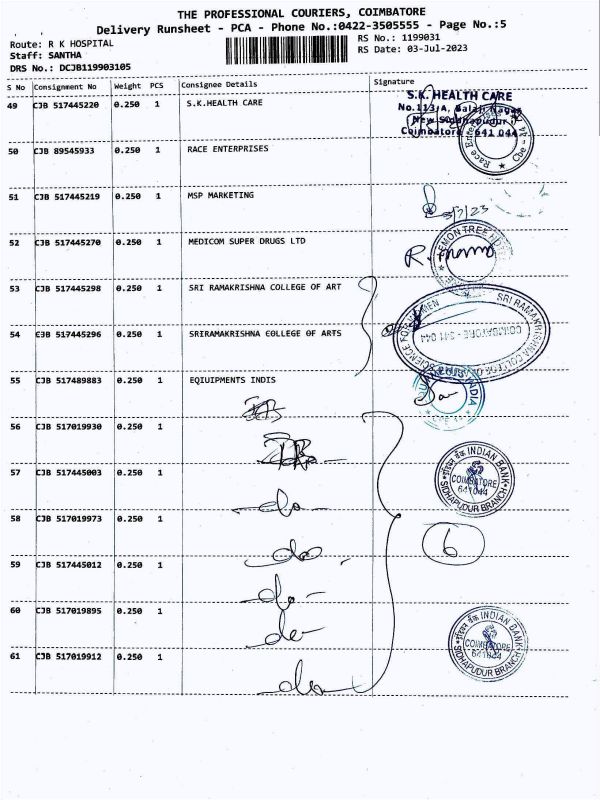 THE PROFESSIONAL COURIERS, COIMBATORE
Delivery Runsheet - PCA - Phone No.:0422-3505555 - Page No.:5
Route: R K HOSPITAL
Staff: SANTHA
DRS No.: DCJB119903105
RS No.: 1199031
RS Date: 03-Jul-2023
S No Consignment No Weight PCS Consignee Details Signature
49 CJB 517445220 0.250 1 S.K.HEALTH CARE
S.K. HEALTH CARE
No.113/A, Balaji Nagar
New Sidhapudur
Coimbatore - 641 044
Race
50 CJB 89545933 0.250 1 RACE ENTERPRISES
51 CJB 517445219 0.250 1 MSP MARKETING
3/7/23
52 CJB 517445270 0.250 1 MEDICOM SUPER DRUGS LTD
LEMON TREE
53 CJB 517445298 0.250 1 SRI RAMAKRISHNA COLLEGE OF ART
54 CJB 517445296 0.250 1 SRIRAMAKRISHNA COLLEGE OF ARTS
SRI RAMAKRISHNA COLLEGE OF
SCIENCE FOR WOMEN
COIMBATORE - 641 044
55 CJB 517489883 0.250 1 EQIUIPMENTS INDIS
56 CJB 517019930 0.250 1
57 CJB 517445003 0.250 1
इंडियन बैंक INDIAN BANK
COIMBATORE
641044
SIDHAPUDUR BRANCH
do
58 CJB 517019973 0.250 1
do
6
59 CJB 517445012 0.250 1
do
60 CJB 517019895 0.250 1
do
इंडियन बैंक INDIAN BANK
COIMBATORE
641044
SIDHAPUDUR BRANCH
61 CJB 517019912 0.250 1
do